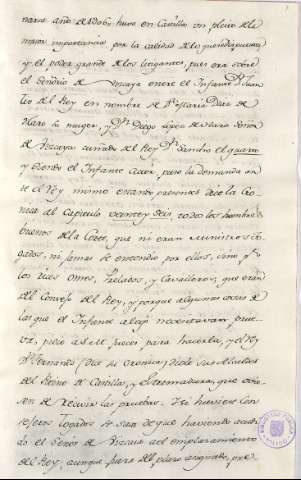 año de huvo en Castilla un pleito de la
mayor importancia por la calidad de lo que se disputava
y el poder grande de los litigantes, pues era sobre
el Señorio de Vizcaya entre el Infante Dn. Juan
tio del Rey en nombre de Da. Maria Diaz de
Haro su muger, y Dn. Diego Lopez de Haro Señor
de Vizcaya cuñado del Rey Dn. Sancho el quarto
y siendo el Infante Actor, puso la demanda an
te el Rey mismo estando presentes dice la Cro
nica al Capitulo veinte y seis, todos los hombres
buenos de la Corte, que ni eran Ministros to
gados, ni jamas se entendio por ellos, sino pr.
los ricos omes, Prelados, y Cavalleros, que eran
del Consejo del Rey, y porque algunas cosas de
las que el Infante alegó necesitavan prue
va, pidio a S.M. jueces para hacerla, y el Rey
Dn. Fernando (dice su cronica) diole sus Alcaldes
del Reino de Castilla, y Extremadura, que
sen de recivir las pruebas. Si huviese con
sejeros togados
do el Señor de Vizcaya al emplazamiento
del Rey, aunque paso del plazo asignado, pre